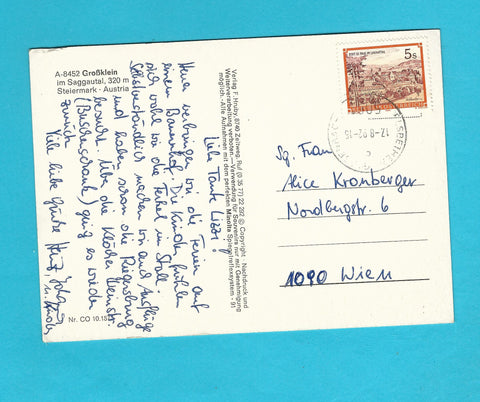 A-8452 Großklein
im Saggautal, 320 m
Steiermark · Austria
Liebe Tante Lizzi!
Heuer verbringen wir die Ferien auf
einem Bauernhof. Die Kinder fühlen
sich wohl wie die Ferkel im Stall.
Selbstverständlich machen wir auch Ausflüge
und haben schon die Riegersburg
besucht. Über die Klöcher Weinstr.
(Buschenschank) ging es wieder
zurück.
Viele liebe Grüße
u. Kinder
Nr. CO 10.18
Verlag F. Hruby, 8740 Zeltweg, Ruf (0 35 77) 22 292 © Copyright · Nachdruck und
Weiterverarbeitung verboten. – Verwendung für Souvenirs nur mit Genehmigung
möglich. · Alle Aufnahmen mit dem perfekten Minolta Spiegelreflexsystem · 91
5s
12-8-92-15
Sg. Frau
Alice Kronberger
Nordbergstr. 6
1090 Wien